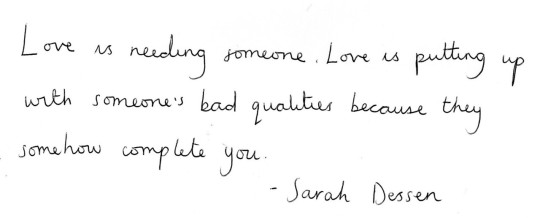 Love is needing someone. Love is putting up
with someone's bad qualities because they
somehow complete you.
- Sarah Dessen